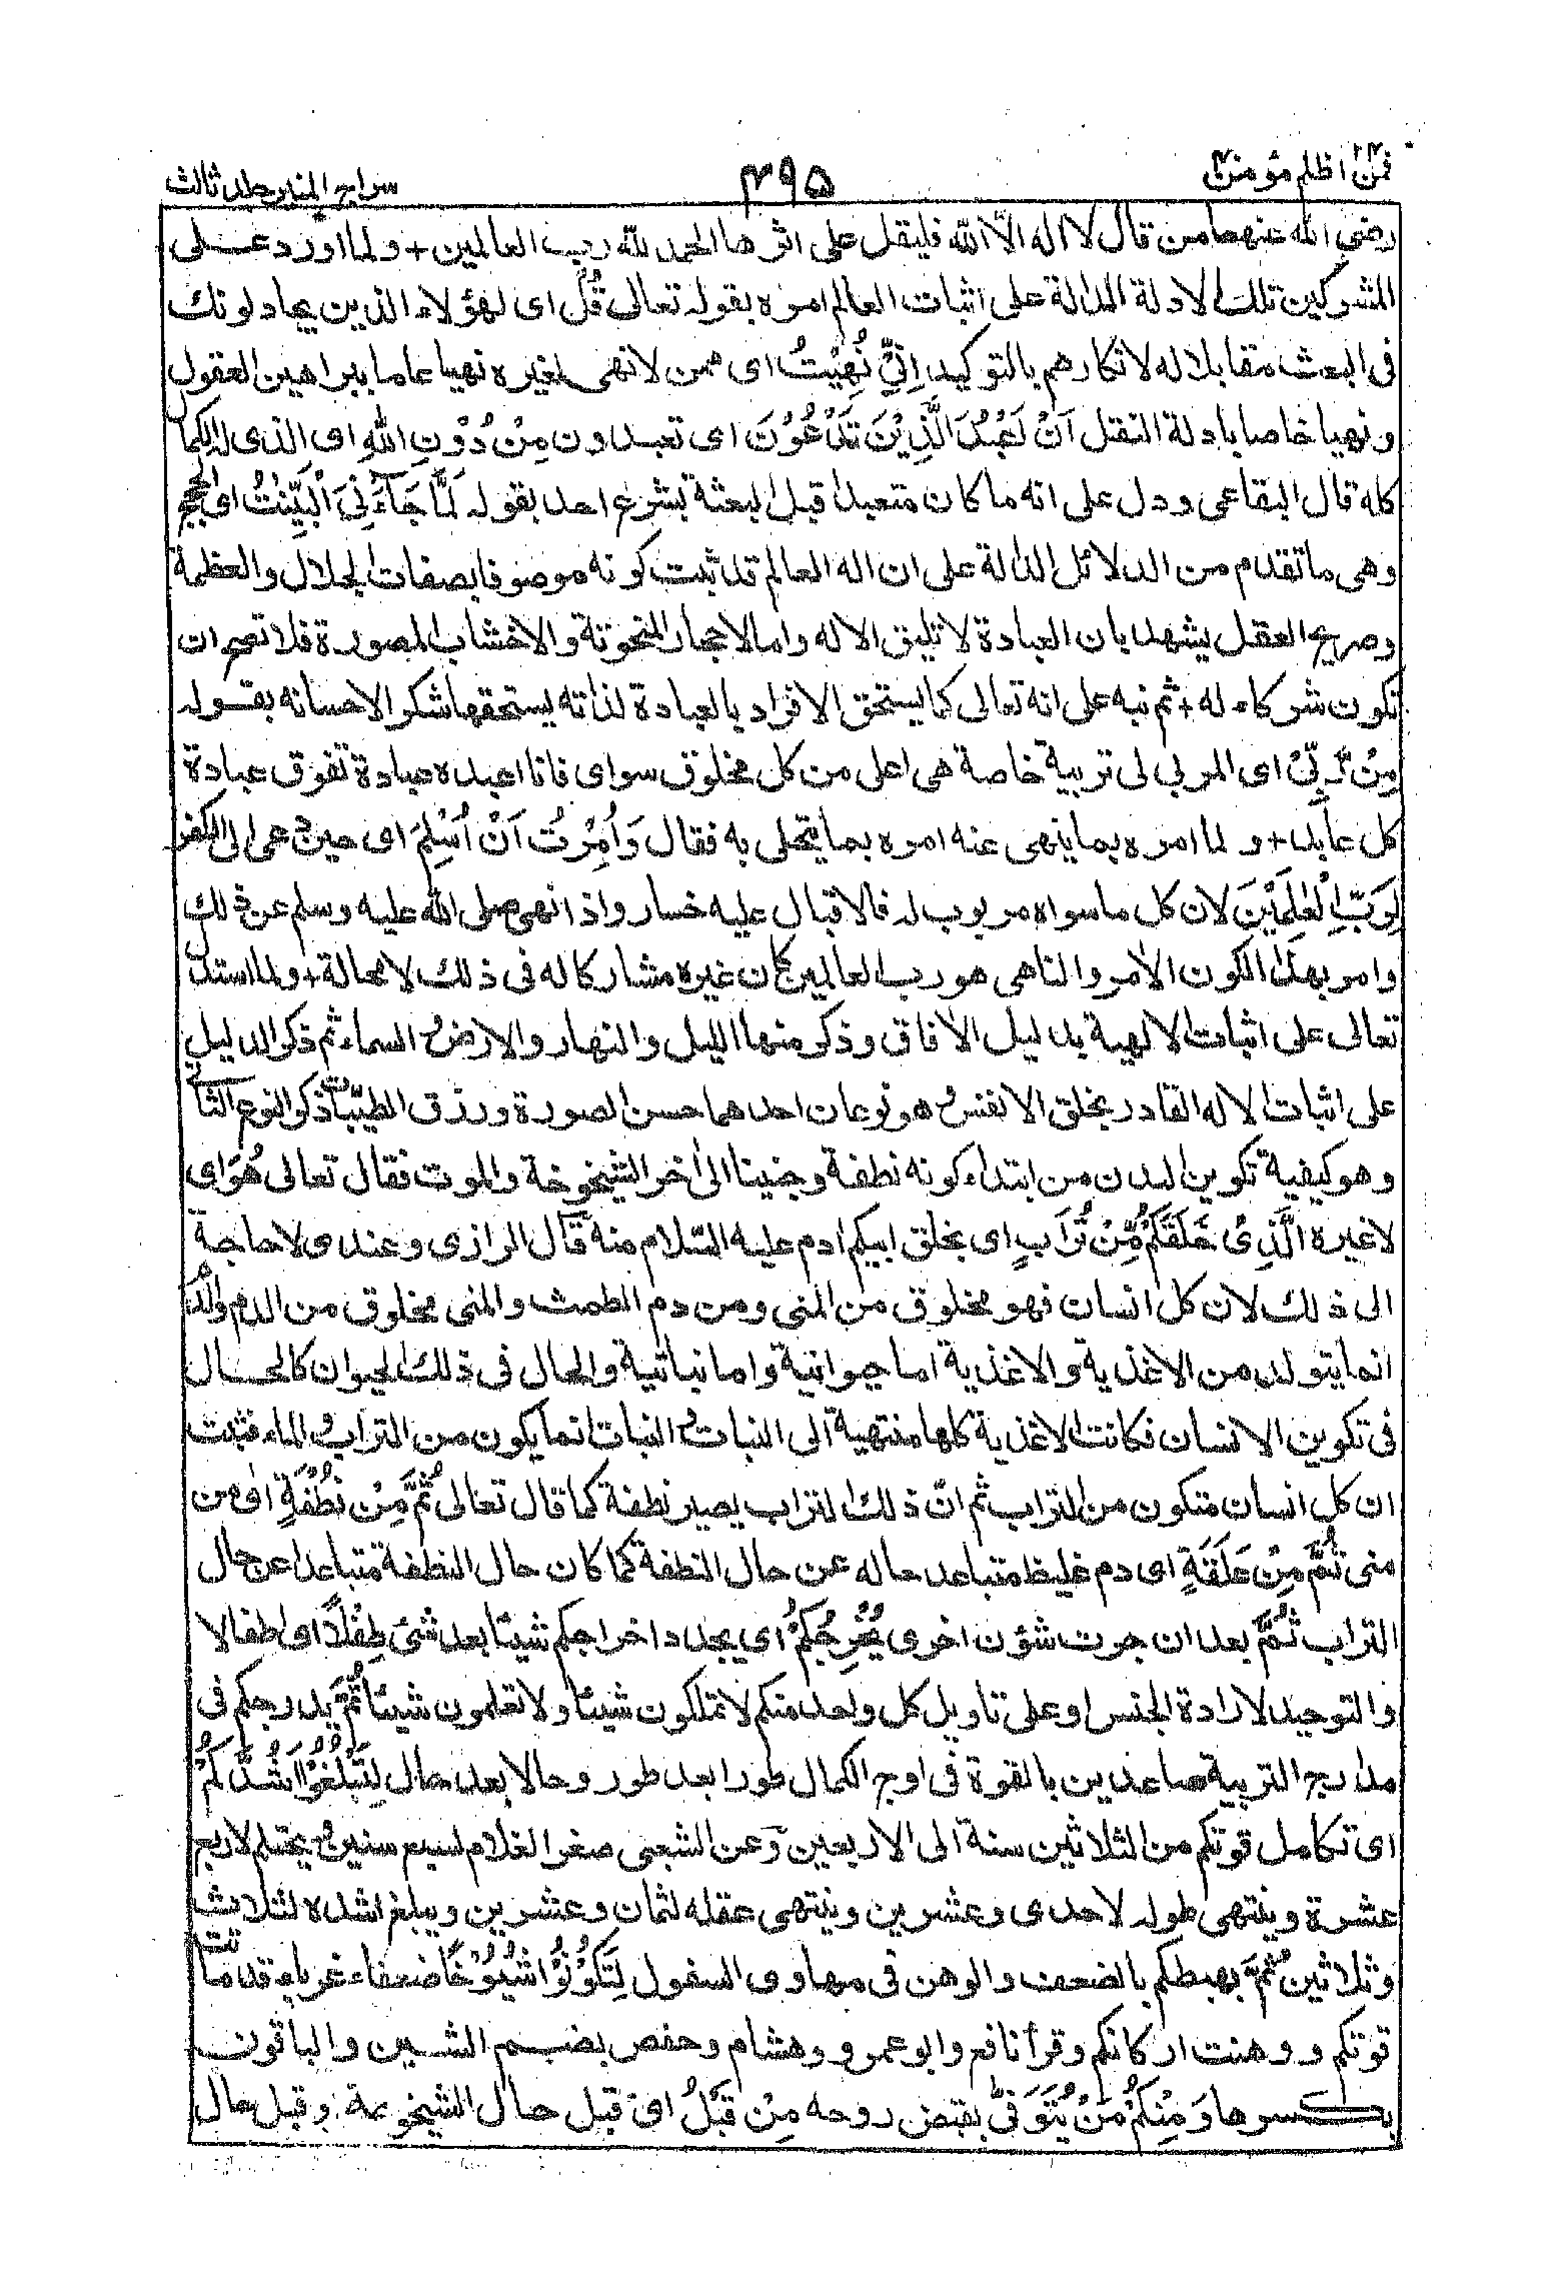 فمن اظلم مؤمن
۴۹۵
سراج المنير جلد ثالث
رضى الله عنهما من قال لا اله الّا الله فليقل على اثرها الحمد لله رب العالمين + ولما اورد على
المشركين تلك الادلة الدالة على اثبات اله العالم امره بقوله تعالى قُلْ اى لهؤلاء الذين يجادلونك
فى البعث مقابلا له لانكارهم بالتوكيد اِنِّيْ نُهِيْتُ اى ممن لا نهى لغيره نهيا عاما ببراهين العقول
ونهيا خاصا بادلة النقل اَنْ اَعْبُدَ الَّذِيْنَ تَدْعُوْنَ اى تعبدون مِنْ دُوْنِ اللّٰهِ اى الذى له الكمال
كله قال البقاعى ودل على انه ما كان متعبدا قبل البعثة بشرع احد بقوله لَمَّا جَآءَنِيَ الْبَيِّنٰتُ اى الحجج
وهى ما تقدم من الدلائل الدالة على ان اله العالم قد ثبت كونه موصوفا بصفات الجلال والعظمة
وصريح العقل يشهد بان العبادة لا تليق الا له واما الاحجار المنحوتة والاخشاب المصورة فلا تصح ان
تكون شركاء له + ثم نبه على انه تعالى كما يستحق الافراد بالعبادة لذاته يستحقها شكرا لاحسانه بقوله
مِنْ رَّبِّيْ اى المربى لى تربية خاصة هى اعلى من كل مخلوق سواى فانا اعبده عبادة تفوق عبادة
كل عابد + ولما امره بما ينهى عنه امره بما يتحلى به فقال وَاُمِرْتُ اَنْ اُسْلِمَ اى
لِرَبِّ الْعٰلَمِيْنَ لان كل ما سواه مربوب له فالاقبال عليه خسار واذا نهى صلى الله عليه وسلم عن ذلك
وامر بهذا الكون الآمر والناهى هو رب العالمين كان غيره مشاركا له فى ذلك لا محالة + ولما استدل
تعالى على اثبات الالهية بدليل الآفاق وذكر منها الليل والنهار والارض والسماء ثم ذكر الدليل
على اثبات الاله القادر بخلق الانفس وهو نوعان احدهما حسن الصورة ورزق الطيبات ذكر النوع الثانى
وهو كيفية تكوين البدن من ابتداء كونه نطفة وجنينا الى آخر الشيخوخة والموت فقال تعالى هُوَ اى
لا غيره الَّذِىْ خَلَقَكُمْ مِّنْ تُرَابٍ اى بخلق ابيكم ادم عليه السّلام منه قال الرازى وعندى لا حاجة
الى ذلك لان كل انسان فهو مخلوق من المنى ومن دم الطمث والمنى مخلوق من الدم والدم
انما يتولد من الاغذية والاغذية اما حيوانية واما نباتية والحال فى ذلك الحيوان كالحال
فى تكوين الانسان فكانت الاغذية كلها منتهية الى النبات والنبات انما يكون من التراب والماء فثبت
ان كل انسان متكون من التراب ثم انّ ذلك التراب يصير نطفة كما قال تعالى ثُمَّ مِنْ نُّطْفَةٍ اى من
منى ثُمَّ مِنْ عَلَقَةٍ اى دم غليظ متباعد حاله عن حال النطفة كما كان حال النطفة متباعدا عن حال
التراب ثُمَّ بعد ان جرت شؤن اخرى يُخْرِجُكُمْ اى يجدد اخراجكم شيئا بعد شئ طِفْلًا اى اطفالا
والتوحيد لارادة الجنس او على تاويل كل واحد منكم لا تملكون شيئا ولا تعلمون شيئا ثُمَّ يدرجكم فى
مدارج التربية صاعدين بالقوة فى اوج الكمال طورا بعد طور وحالا بعد حال لِتَبْلُغُوْٓا اَشُدَّكُمْ
اى تكامل قوتكم من الثلاثين سنة الى الاربعين وعن الشعبى صغر الغلام لسبع سنين ويحتلم لاربع
عشرة وينتهى طوله لاحدى وعشرين وينتهى عقله لثمان وعشرين ويبلغ اشده لثلاث
وثلاثين ثُمَّ يهبطكم بالضعف والوهن فى مهاوى السفول لِتَكُوْنُوْا شُيُوْخًا ضعفاء غرباء قد ماتت
قوتكم ووهنت اركانكم وقرأ نافع وابو عمرو وهشام وحفص بضم الشين والباقون
بكسرها وَمِنْكُمْ مَّنْ يُّتَوَفّٰى بقبض روحه مِنْ قَبْلُ اى قبل حال الشيخوخة وقبل حال